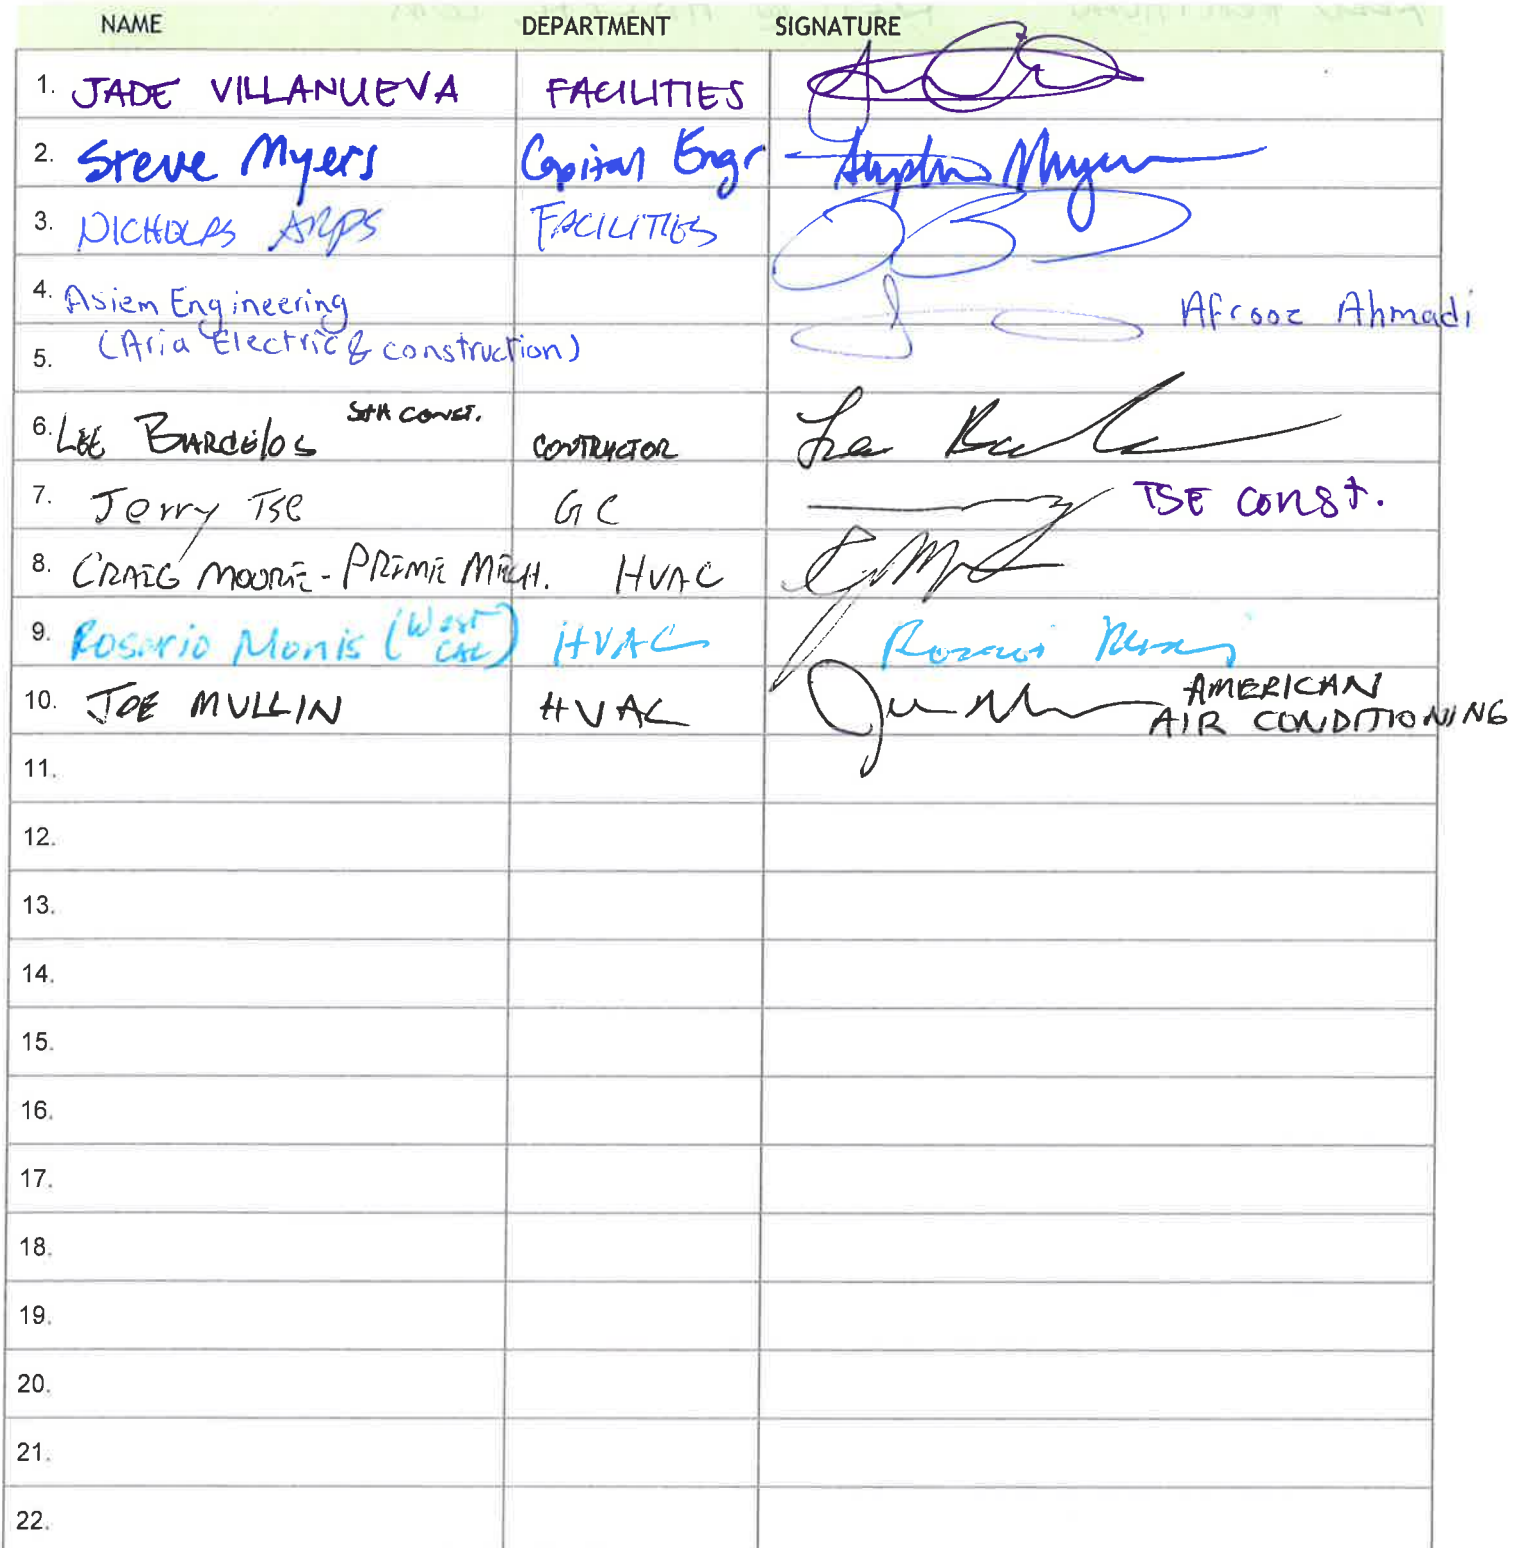 NAME DEPARTMENT SIGNATURE
1. JADE VILLANUEVA FACILITIES
2. Steve Myers Capital Engr Stephen Myers
3. NICHOLAS ARPS FACILITIES
4. Asiem Engineering Afrooz Ahmadi
5. (Aria Electric & construction)
6. LEE BARCELOS CONST. CONTRACTOR Lee
7. Jerry Tse GC TSE CONST.
8. CRAIG MOORE - PRIME MECH. HVAC
9. Rosario Monis (West CAL) HVAC
10. JOE MULLIN HVAC AMERICAN
AIR CONDITIONING
11.
12.
13.
14.
15.
16.
17.
18.
19.
20.
21.
22.